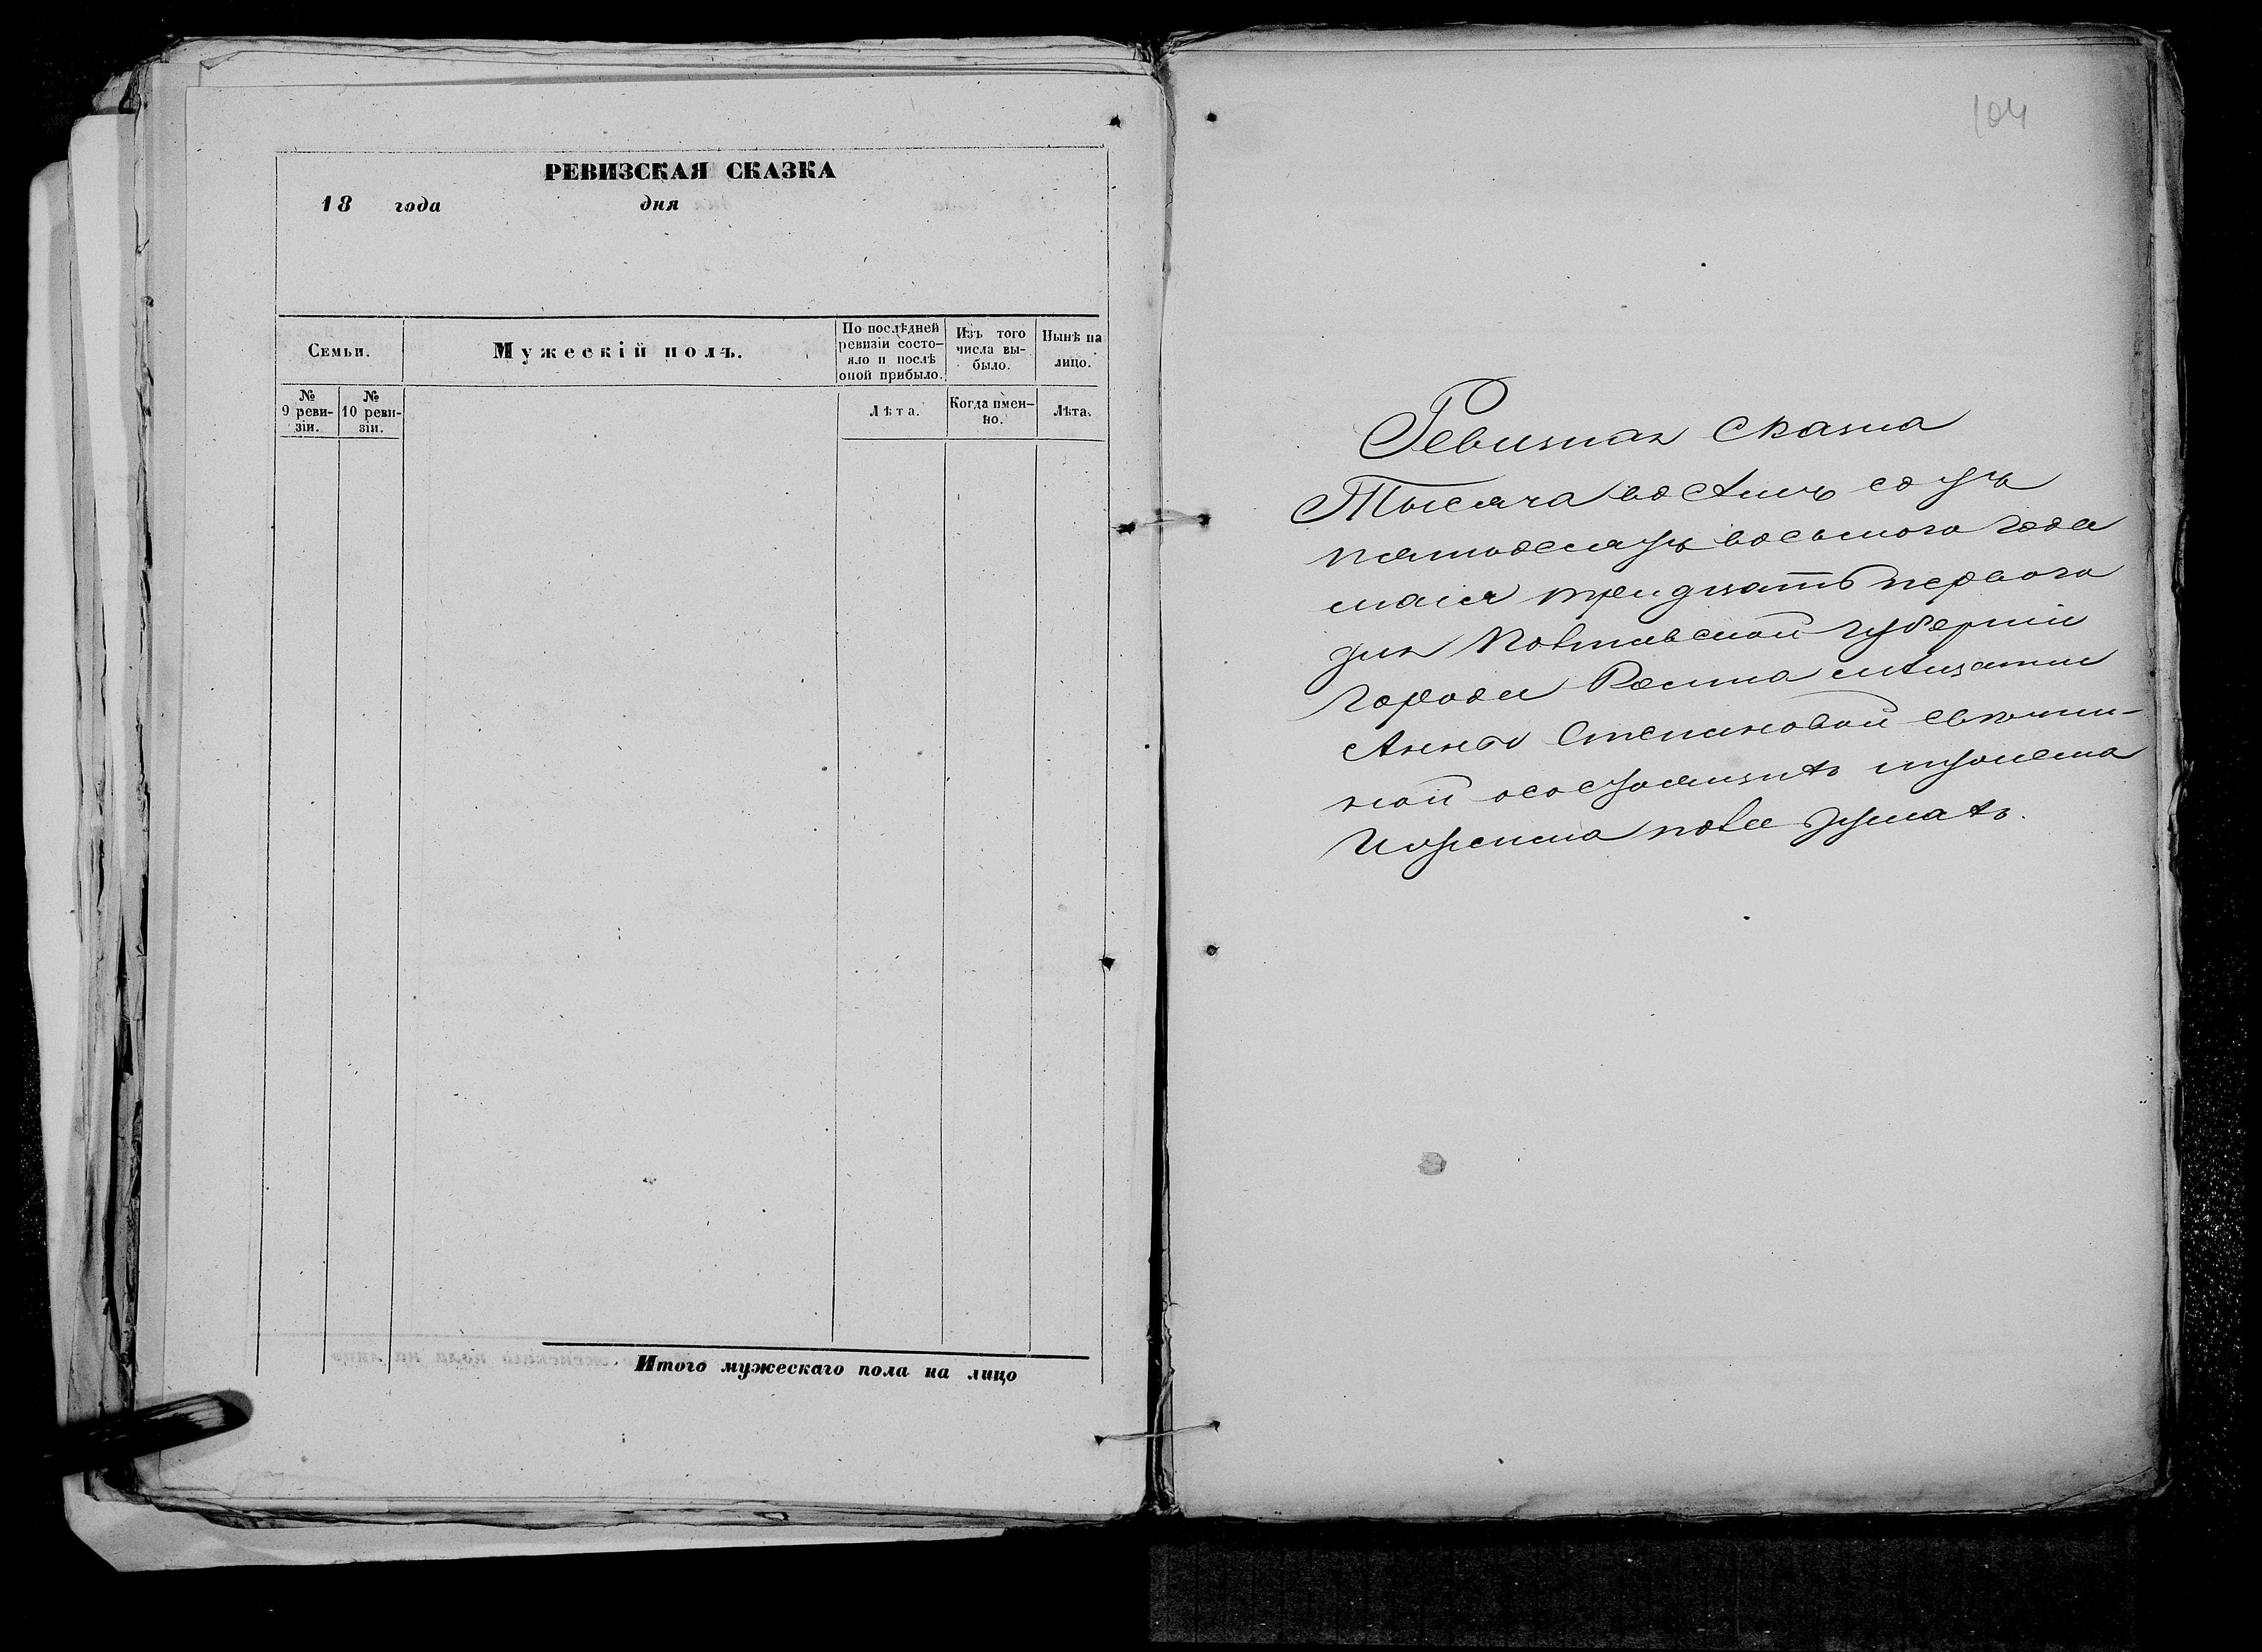 РЕВИЗСКАЯ СКАЗКА
18 года дня
Семьи.
Мужескій полъ.
По послѣдней ревизіи состо-яло и послѣ оной прибыло.
Изъ того числа вы-было.
Нынѣ на лицо.
№ 9 реви-зіи.
№ 10 реви-зіи.
Лѣта.
Когда имен-но.
Лѣта.
Итого мужескаго пола на лицо
104
Ревизная Сказка
Тысяча восѣмъ сотъ
пятьдесятъ восьмого года
маія тридцать перваго
дня Полтавской губерніи
города Ромна мѣщанки
Анны Степановой
ной осостоящихъ мужеска
Иженска пола душахъ.